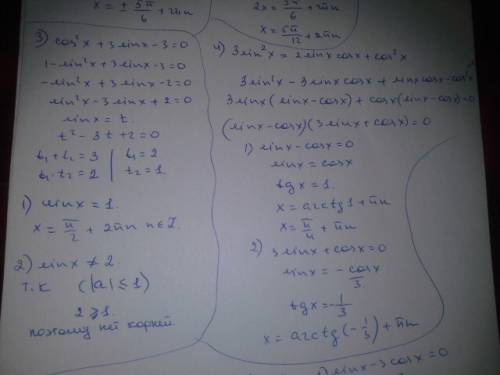 x = ± 5π/6 + 2πn
2x = 5π/6 + 2πn
x = 5π/12 + 2πn
3) cos²x + 3 sinx - 3 = 0
1 - sin²x + 3 sinx - 3 = 0
- sin²x + 3 sinx - 2 = 0
sin²x - 3 sinx + 2 = 0
sinx = t.
t² - 3t + 2 = 0
t₁ + t₂ = 3 | t₁ = 2
t₁ · t₂ = 2 | t₂ = 1
1) sinx = 1.
x = π/2 + 2πn n ∈ Z.
2) sinx ≠ 2.
т.к (|a| ≤ 1)
2 ⩾ 1.
поэтому нет корней.
4) 3 sin²x = 2 sinx cosx + cos²x
3 sin²x - 3 sinx cosx + sinx cosx - cos²x
3 sinx (sinx - cosx) + cosx (sinx - cosx) = 0
(sinx - cosx)(3 sinx + cosx) = 0
1) sinx - cosx = 0
sinx = cosx
tgx = 1.
x = arctg 1 + πn
x = π/4 + πn
2) 3 sinx + cosx = 0
sinx = - cosx/3
tgx = - 1/3
x = arctg (- 1/3) + πn
sinx - 3 cosx = 0